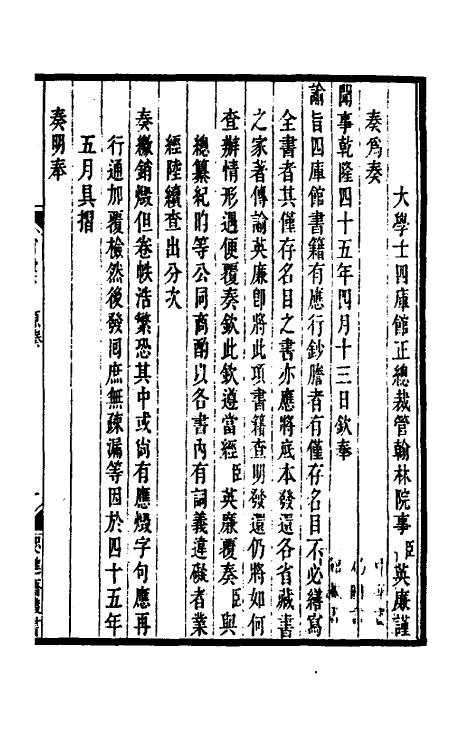 大學士四庫館正總裁管翰林院事臣英廉謹
奏爲奏
聞事乾隆四十五年四月十三日欽奉
諭旨四庫館書籍有應行鈔謄者有僅存名目不必繕寫
全書者其僅存名目之書亦應將底本發還各省藏書
之家著傳諭英廉卽將此項書籍查明發還仍將如何
查辦情形遇便覆奏欽此欽遵當經臣英廉覆奏臣與
總纂紀昀等公同商酌以各書內有詞義違礙者業
經陸續查出分次
奏繳銷燬但卷帙浩繁恐其中或尚有應燬字句應再
行通加覆檢然後發囘庶無疎漏等因於四十五年
五月具摺
奏明奉